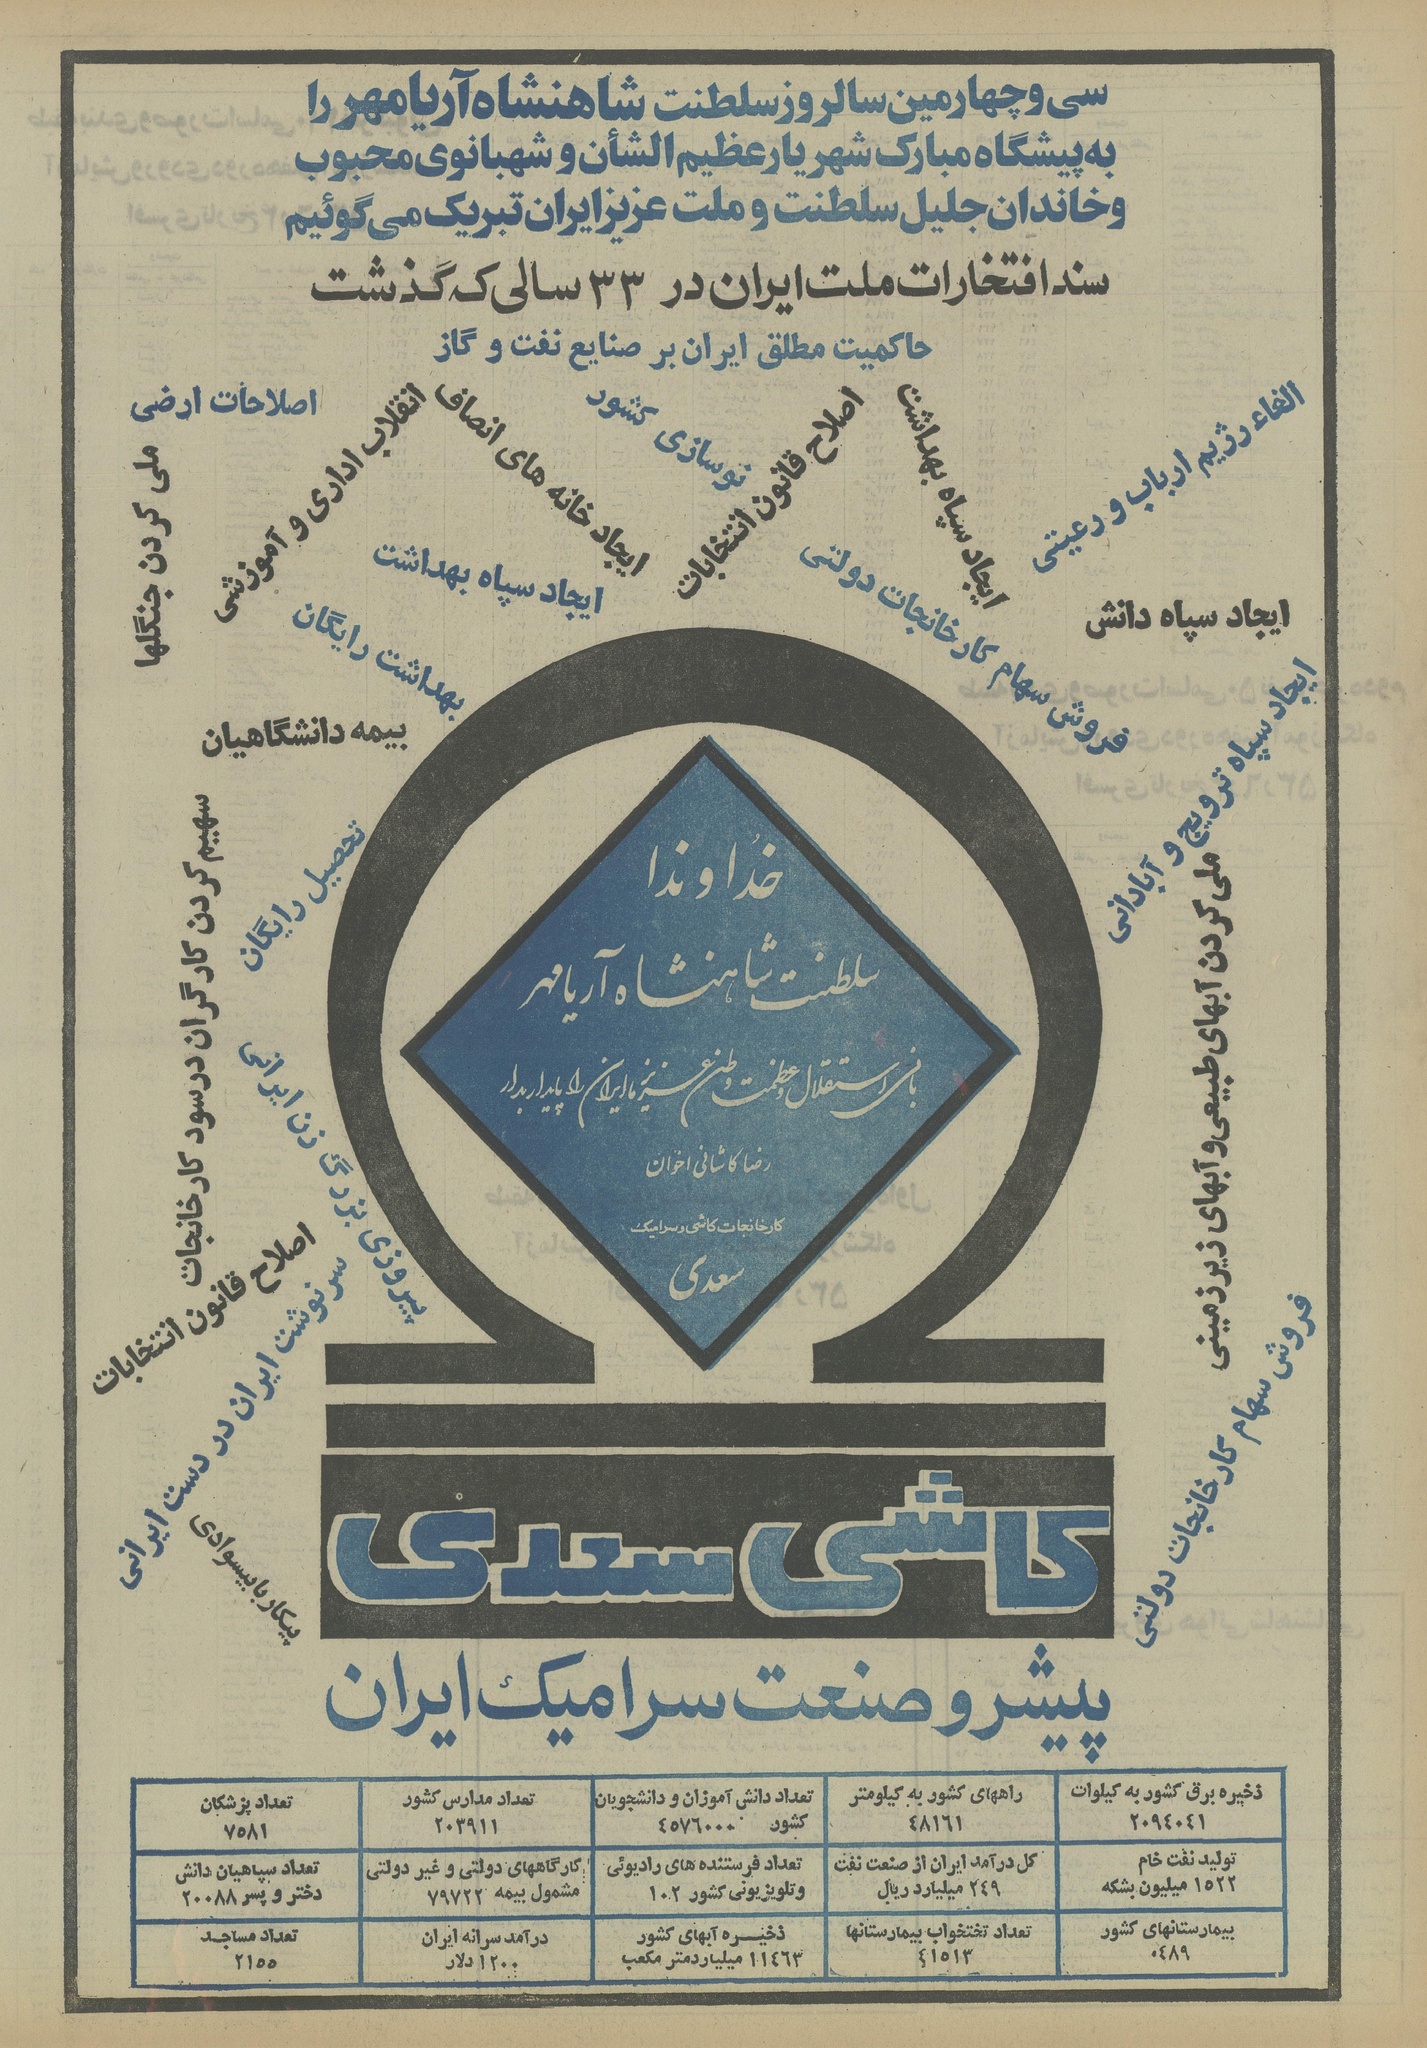 سی و چهارمین سالروز سلطنت شاهنشاه آریامهر را
به پیشگاه مبارک شهریار عظیم الشأن و شهبانوی محبوب
و خاندان جلیل سلطنت و ملت عزیز ایران تبریک می گوئیم
سند افتخارات ملت ایران در ۳۳ سالی که گذشت
حاکمیت مطلق ایران بر صنایع نفت و گاز
الغاء رژیم ارباب و رعیتی
ایجاد سپاه بهداشت
اصلاح قانون انتخابات
نوسازی کشور
ایجاد خانه های انصاف
انقلاب اداری و آموزشی
اصلاحات ارضی
ملی کردن جنگلها
ایجاد سپاه دانش
فروش سهام کارخانجات دولتی
ایجاد سپاه بهداشت
بهداشت رایگان
بیمه دانشگاهیان
ایجاد سپاه ترویج و آبادانی
تحصیل رایگان
سهیم کردن کارگران در سود کارخانجات
ملی کردن آبهای طبیعی و آبهای زیر زمینی
پیروزی بزرگ زن ایرانی
اصلاح قانون انتخابات
سرنوشت ایران در دست ایرانی
فروش سهام کارخانجات دولتی
پیکار با بیسوادی
خداوندا
سلطنت شاهنشاه آریامهر
بانی استقلال و عظمت وطن عزیز ما ایران را پایدار بدار
رضا کاشانی اخوان
کارخانجات کاشی و سرامیک
سعدی
کاشی سعدی
پیشرو صنعت سرامیک ایران
ذخیره برق کشور به کیلوات
۲۰۹۴۰۴۱
راههای کشور به کیلومتر
۴۸۱۶۱
تعداد دانش آموزان و دانشجویان
کشور ۴۵۷۶۰۰۰
تعداد مدارس کشور
۲۰۳۹۱۱
تعداد پزشکان
۷۵۸۱
تولید نفت خام
۱۵۲۲ میلیون بشکه
کل درآمد ایران از صنعت نفت
۲۴۹ میلیارد ریال
تعداد فرستنده های رادیوئی
و تلویزیونی کشور ۱۰۲
کارگاههای دولتی و غیر دولتی
مشمول بیمه ۷۹۷۲۲
تعداد سپاهیان دانش
دختر و پسر ۲۰۰۸۸
بیمارستانهای کشور
۰۴۸۹
تعداد تختخواب بیمارستانها
۴۱۵۱۳
ذخیره آبهای کشور
۱۱۴۶۳ میلیارد متر مکعب
درآمد سرانه ایران
۱۲۰۰ دلار
تعداد مساجد
۲۱۵۵